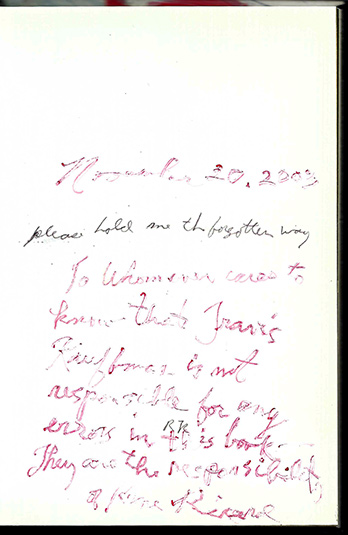 November 20, 2003
please hold me th forgotten way
To Whomever cares to
know that Travis
Kauffman is not
responsible for any
errors in this book —
RTK
They are the responsibility
of